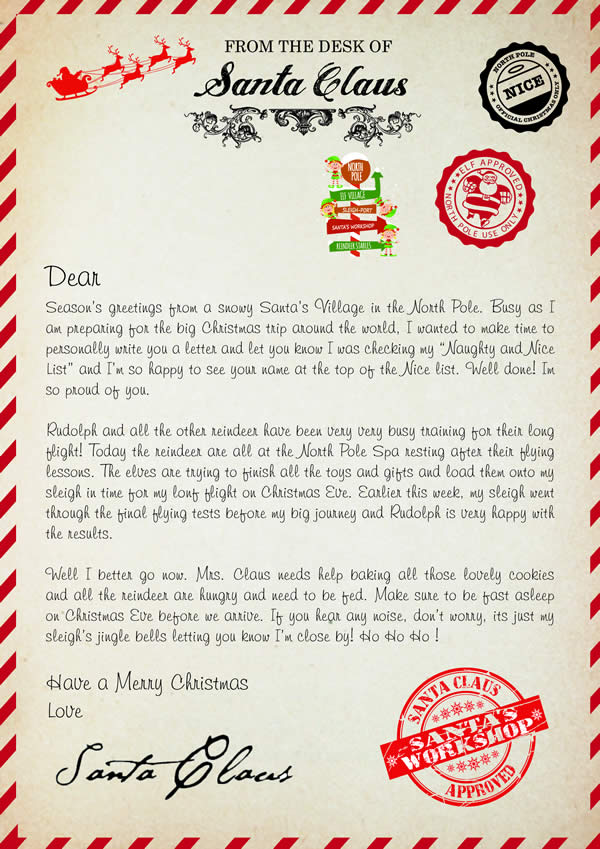 FROM THE DESK OF
Santa Claus
NORTH POLE
NICE
OFFICIAL CHRISTMAS ONLY
NORTH POLE
ELF VILLAGE
SLEIGH-PORT
SANTA'S WORKSHOP
REINDEER STABLES
ELF APPROVED
NORTH POLE USE ONLY
Dear
Season's greetings from a snowy Santa's Village in the North Pole. Busy as I
am preparing for the big Christmas trip around the world, I wanted to make time to
personally write you a letter and let you know I was checking my "Naughty and Nice
List" and I'm so happy to see your name at the top of the Nice list. Well done! Im
so proud of you.
Rudolph and all the other reindeer have been very very busy training for their long
flight! Today the reindeer are all at the North Pole Spa resting after their flying
lessons. The elves are trying to finish all the toys and gifts and load them onto my
sleigh in time for my lonf flight on Christmas Eve. Earlier this week, my sleigh went
through the final flying tests before my big journey and Rudolph is very happy with
the results.
Well I better go now. Mrs. Claus needs help baking all those lovely cookies
and all the reindeer are hungry and need to be fed. Make sure to be fast asleep
on Christmas Eve before we arrive. If you hear any noise, don't worry, its just my
sleigh's jingle bells letting you know I'm close by! Ho Ho Ho !
Have a Merry Christmas
Love
Santa Claus
SANTA CLAUS
SANTA'S
WORKSHOP
APPROVED